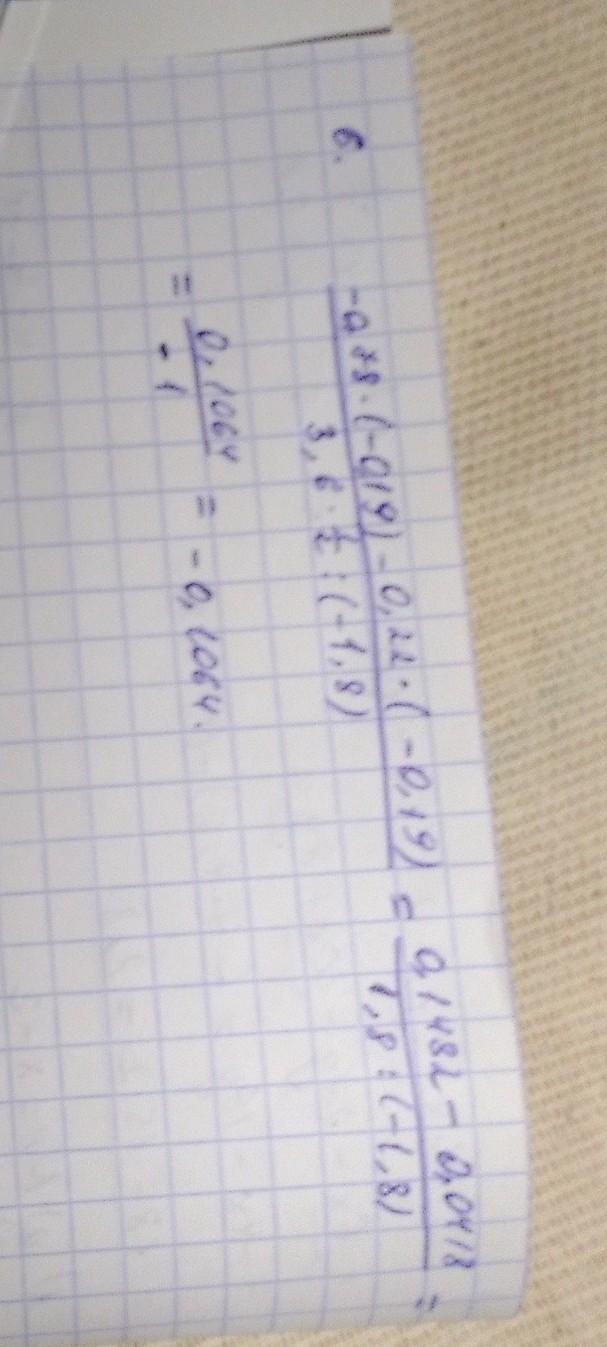 6.
-0,78·(-0,19)-0,22·(-0,19) = 0,1482-0,0418 =
3,6·1/2:(-1,8) 1,8:(-1,8)
= 0,1064 = -0,1064.
-1